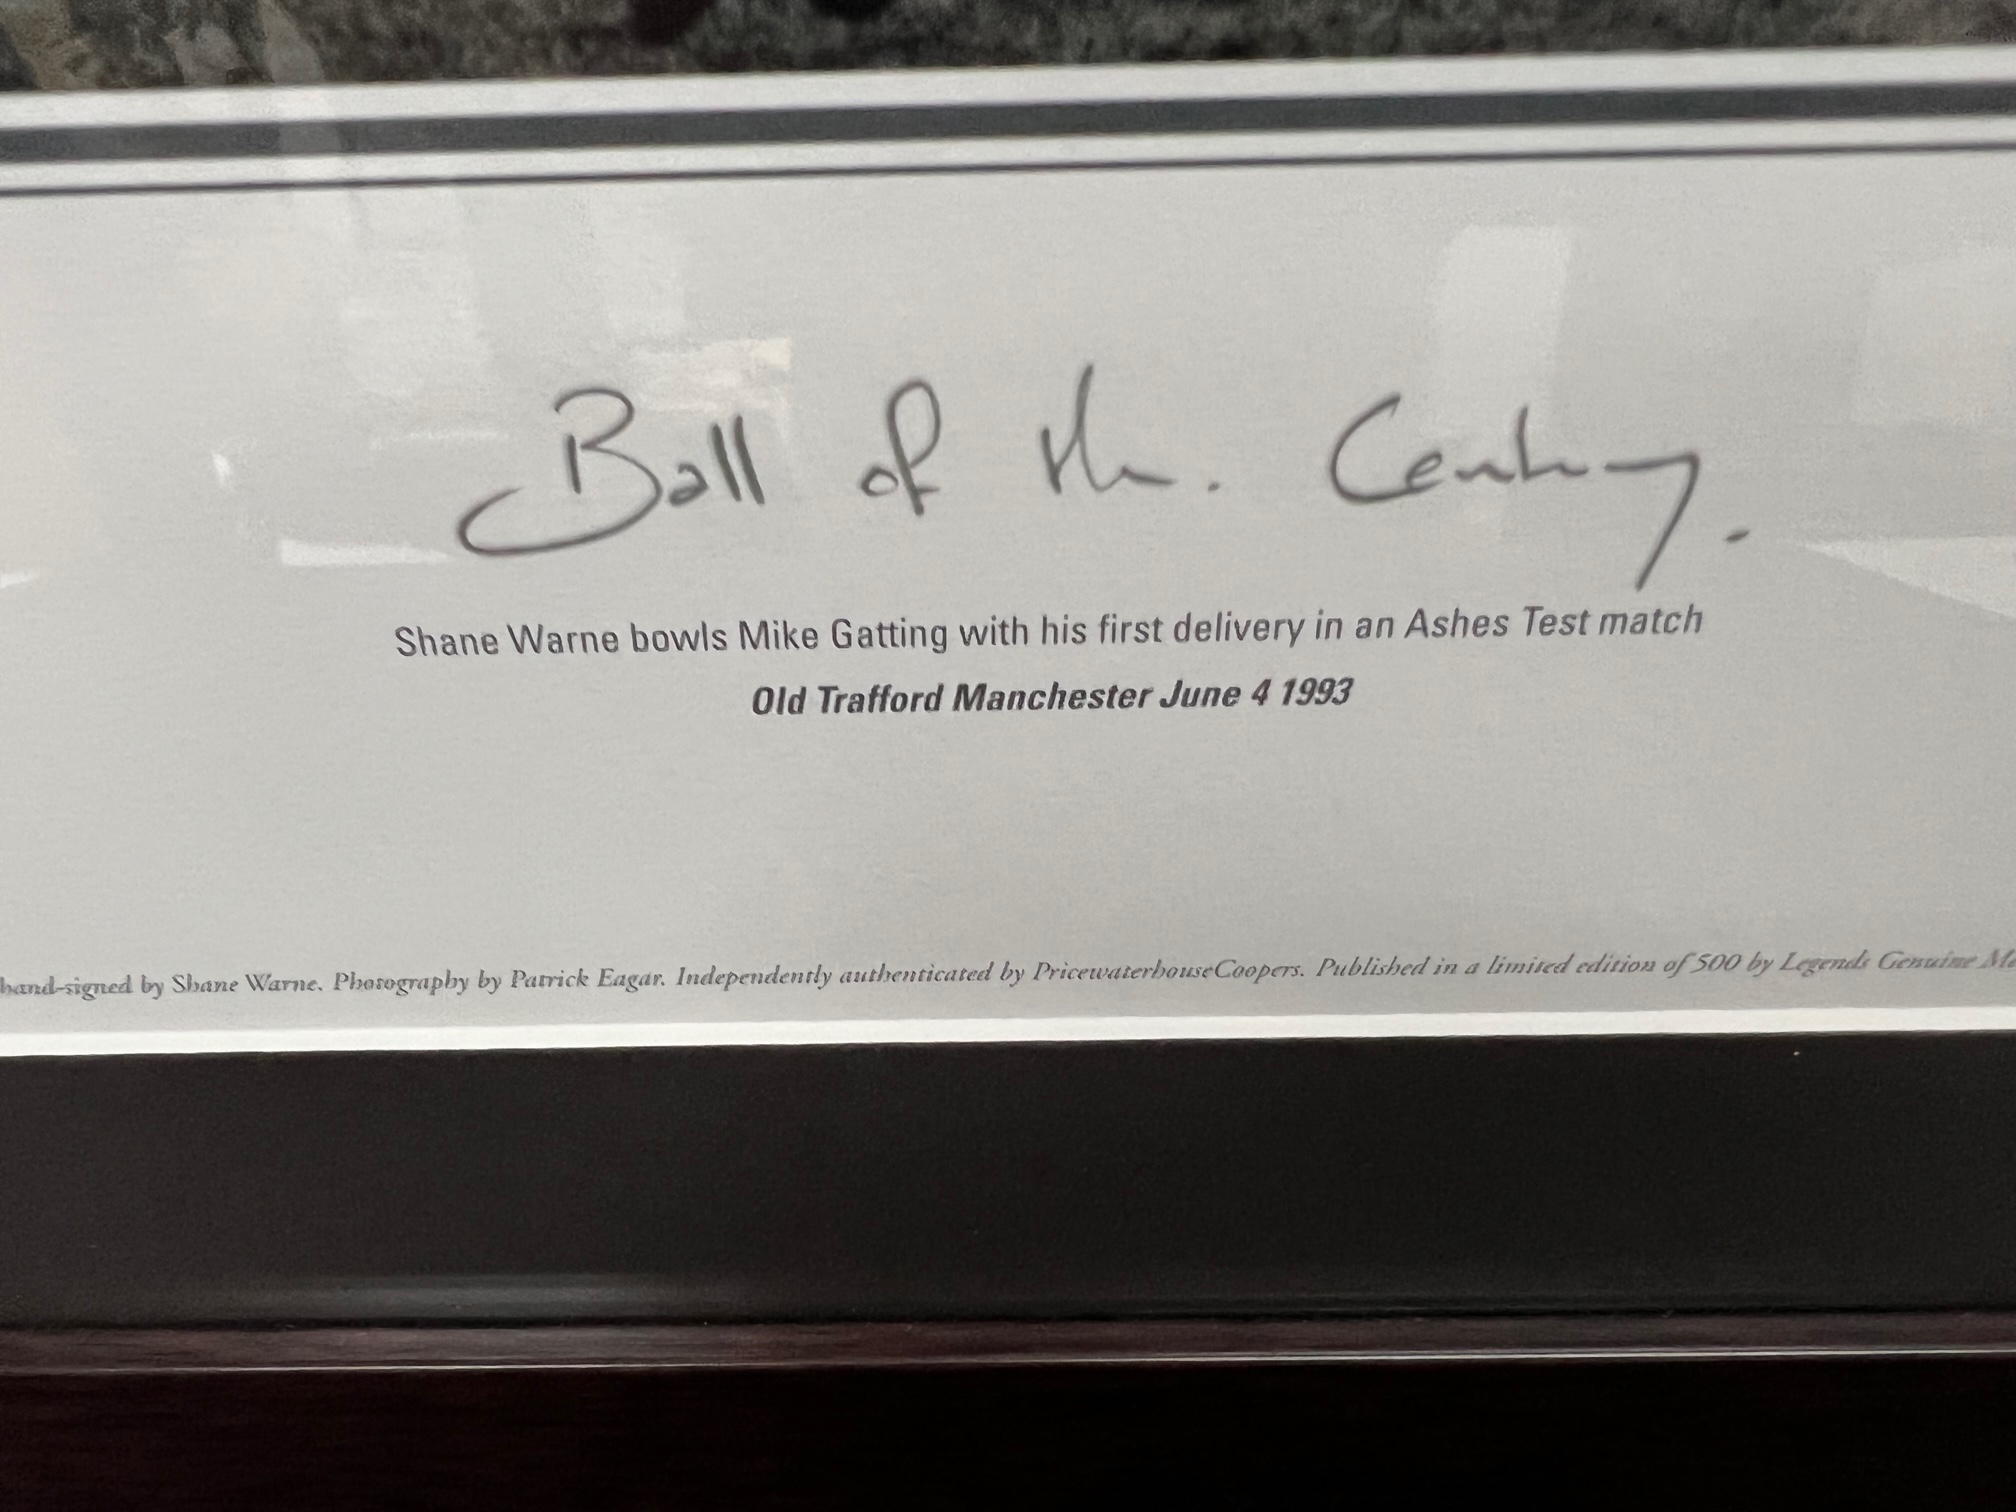 Ball of the. Century.
Shane Warne bowls Mike Gatting with his first delivery in an Ashes Test match
Old Trafford Manchester June 4 1993
hand-signed by Shane Warne. Photography by Patrick Eagar. Independently authenticated by PricewaterhouseCoopers. Published in a limited edition of 500 by Legends Genuine